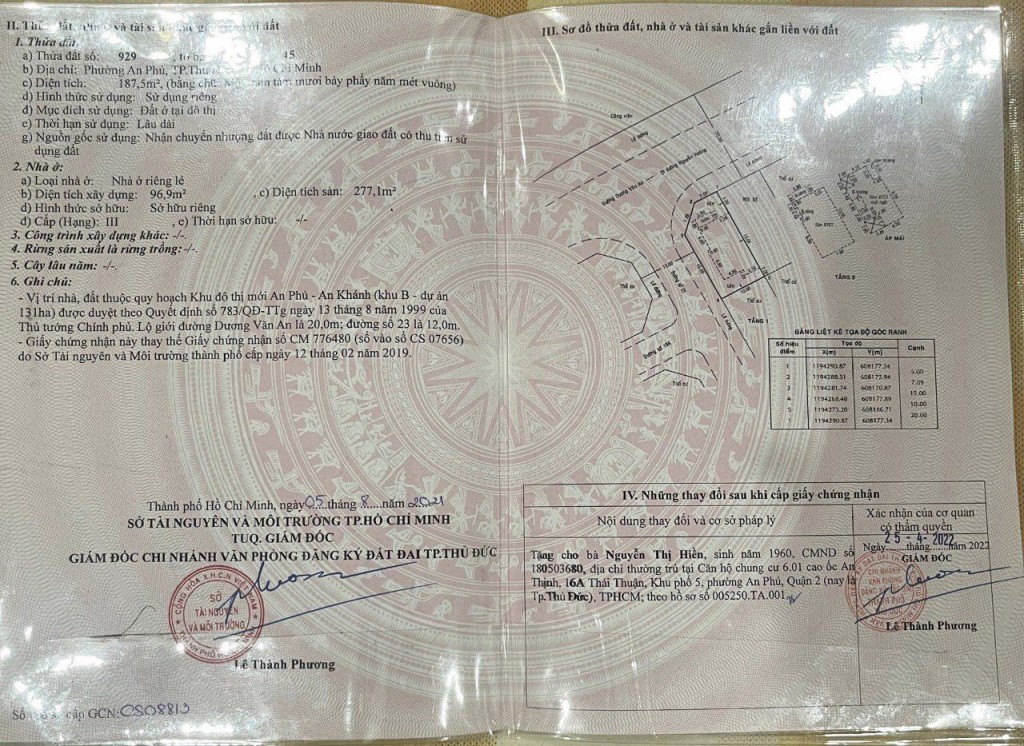 II. Thửa đất, nhà ở và tài sản khác gắn liền với đất
1. Thửa đất:
a) Thửa đất số: 929 , tờ bản 45
b) Địa chỉ: Phường An Phú, TP.Thủ Hồ Chí Minh
c) Diện tích: 187,5m², (bằng chữ: Một trăm tám mươi bảy phẩy năm mét vuông)
d) Hình thức sử dụng: Sử dụng riêng
đ) Mục đích sử dụng: Đất ở tại đô thị
e) Thời hạn sử dụng: Lâu dài
g) Nguồn gốc sử dụng: Nhận chuyển nhượng đất được Nhà nước giao đất có thu tiền sử
dụng đất
2. Nhà ở:
a) Loại nhà ở: Nhà ở riêng lẻ
b) Diện tích xây dựng: 96,9m² , c) Diện tích sàn: 277,1m²
d) Hình thức sở hữu: Sở hữu riêng
đ) Cấp (Hạng): III , e) Thời hạn sở hữu: -/-
3. Công trình xây dựng khác: -/-
4. Rừng sản xuất là rừng trồng: -/-.
5. Cây lâu năm: -/-.
6. Ghi chú:
- Vị trí nhà, đất thuộc quy hoạch Khu đô thị mới An Phú - An Khánh (khu B - dự án
131ha) được duyệt theo Quyết định số 783/QĐ-TTg ngày 13 tháng 8 năm 1999 của
Thủ tướng Chính phủ. Lộ giới đường Dương Văn An là 20,0m; đường số 23 là 12,0m.
- Giấy chứng nhận này thay thế Giấy chứng nhận số CM 776480 (số vào sổ CS 07656)
do Sở Tài nguyên và Môi trường thành phố cấp ngày 12 tháng 02 năm 2019.
Thành phố Hồ Chí Minh, ngày 05 tháng 8 năm 2021
SỞ TÀI NGUYÊN VÀ MÔI TRƯỜNG TP.HỒ CHÍ MINH
TUQ. GIÁM ĐỐC
GIÁM ĐỐC CHI NHÁNH VĂN PHÒNG ĐĂNG KÝ ĐẤT ĐAI TP.THỦ ĐỨC
CỘNG HÒA X.H.C.N VIỆT NAM
SỞ
TÀI NGUYÊN
VÀ MÔI TRƯỜNG
Lê Thành Phương
Số cấp GCN: CS08813
III. Sơ đồ thửa đất, nhà ở và tài sản khác gắn liền với đất
Công viên
Lề đường
Đường Dương Văn An
Lề đường
Thổ cư
Thổ cư
Thổ cư
Lề đường
Thổ cư
TẦNG 1
TẦNG 2
ÁP MÁI
BẢNG LIỆT KÊ TỌA ĐỘ GÓC RANH
Số hiệu điểm Tọa độ Cạnh
X(m) Y(m)
1 1194290.87 608177.34
5.00
2 1194288.51 608172.94
7.09
3 1194281.74 608170.87
15.00
4 1194268.48 608177.89
10.00
5 1194273.20 608186.71
20.00
1 1194290.87 608177.34
IV. Những thay đổi sau khi cấp giấy chứng nhận
Nội dung thay đổi và cơ sở pháp lý
Xác nhận của cơ quan
có thẩm quyền
Tặng cho bà Nguyễn Thị Hiền, sinh năm 1960, CMND số
180503680, địa chỉ thường trú tại Căn hộ chung cư 6.01 cao ốc An
Thịnh, 16A Thái Thuận, Khu phố 5, phường An Phú, Quận 2 (nay là
Tp.Thủ Đức), TPHCM; theo hồ sơ số 005250.TA.001
25-4-2022
Ngày.....tháng.....năm 2022
GIÁM ĐỐC
CHI NHÁNH
VĂN PHÒNG
Lê Thành Phương